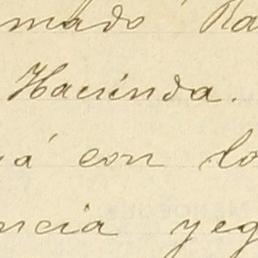 mado Ra
Hacienda.
á con lo
ncia yeg